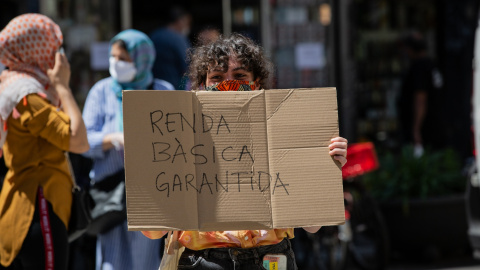 RENDA
BÀSICA
GARANTIDA